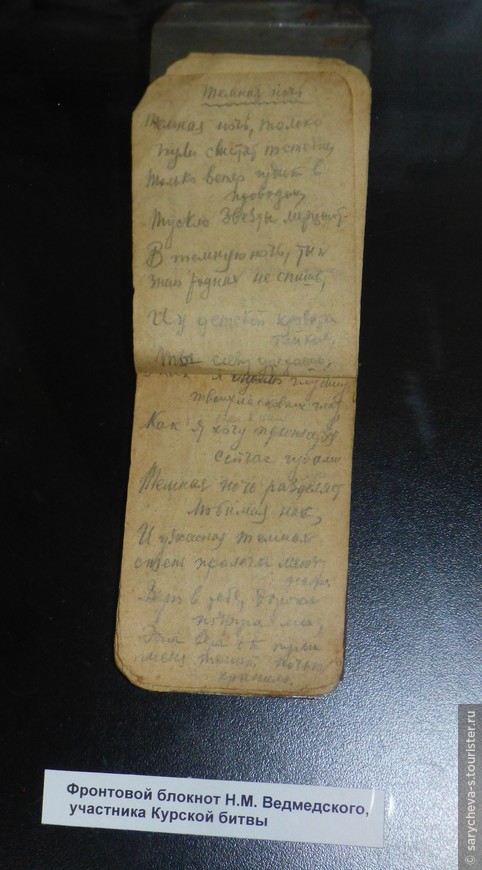 Темная ночь
Темная ночь, только
пули свистят по степи,
только ветер гудит в
проводах,
Тускло звезды мерцают.
В темную ночь, ты я
знаю родная не спишь,
И у детской кроватки
тайком,
Ты слезу
я глубину
твоих ласковых глаз
Как я хочу
сейчас губами
Темная ночь разделяет
любимая нас,
И тёмная
степь пролегла между
нами.
Верю в тебя, дорогую
подругу мою,
Эта вера от пули
меня темной ночью
хранила.
Фронтовой блокнот Н.М. Ведмедского,
участника Курской битвы
© sarycheva-s.tourister.ru